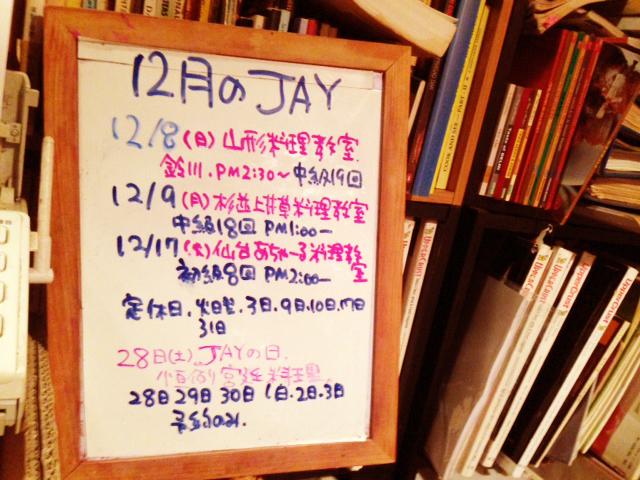 12月のJAY
12/8(日)山形料理教室
鈴川.PM2:30〜中級19回
12/9(月)杉並上井草料理教室
中級18回 PM1:00―
12/17(火)仙台あちゃーる料理教室
初級8回 PM2:00―
定休日.火曜.3日.9日.10日.17日
31日
28日(土)JAYの日.
小宮廷料理
28日29日30日1日.2日.3日
予約のみ.
UpperCrust
UpperCrust
UpperCrust
UpperCrust